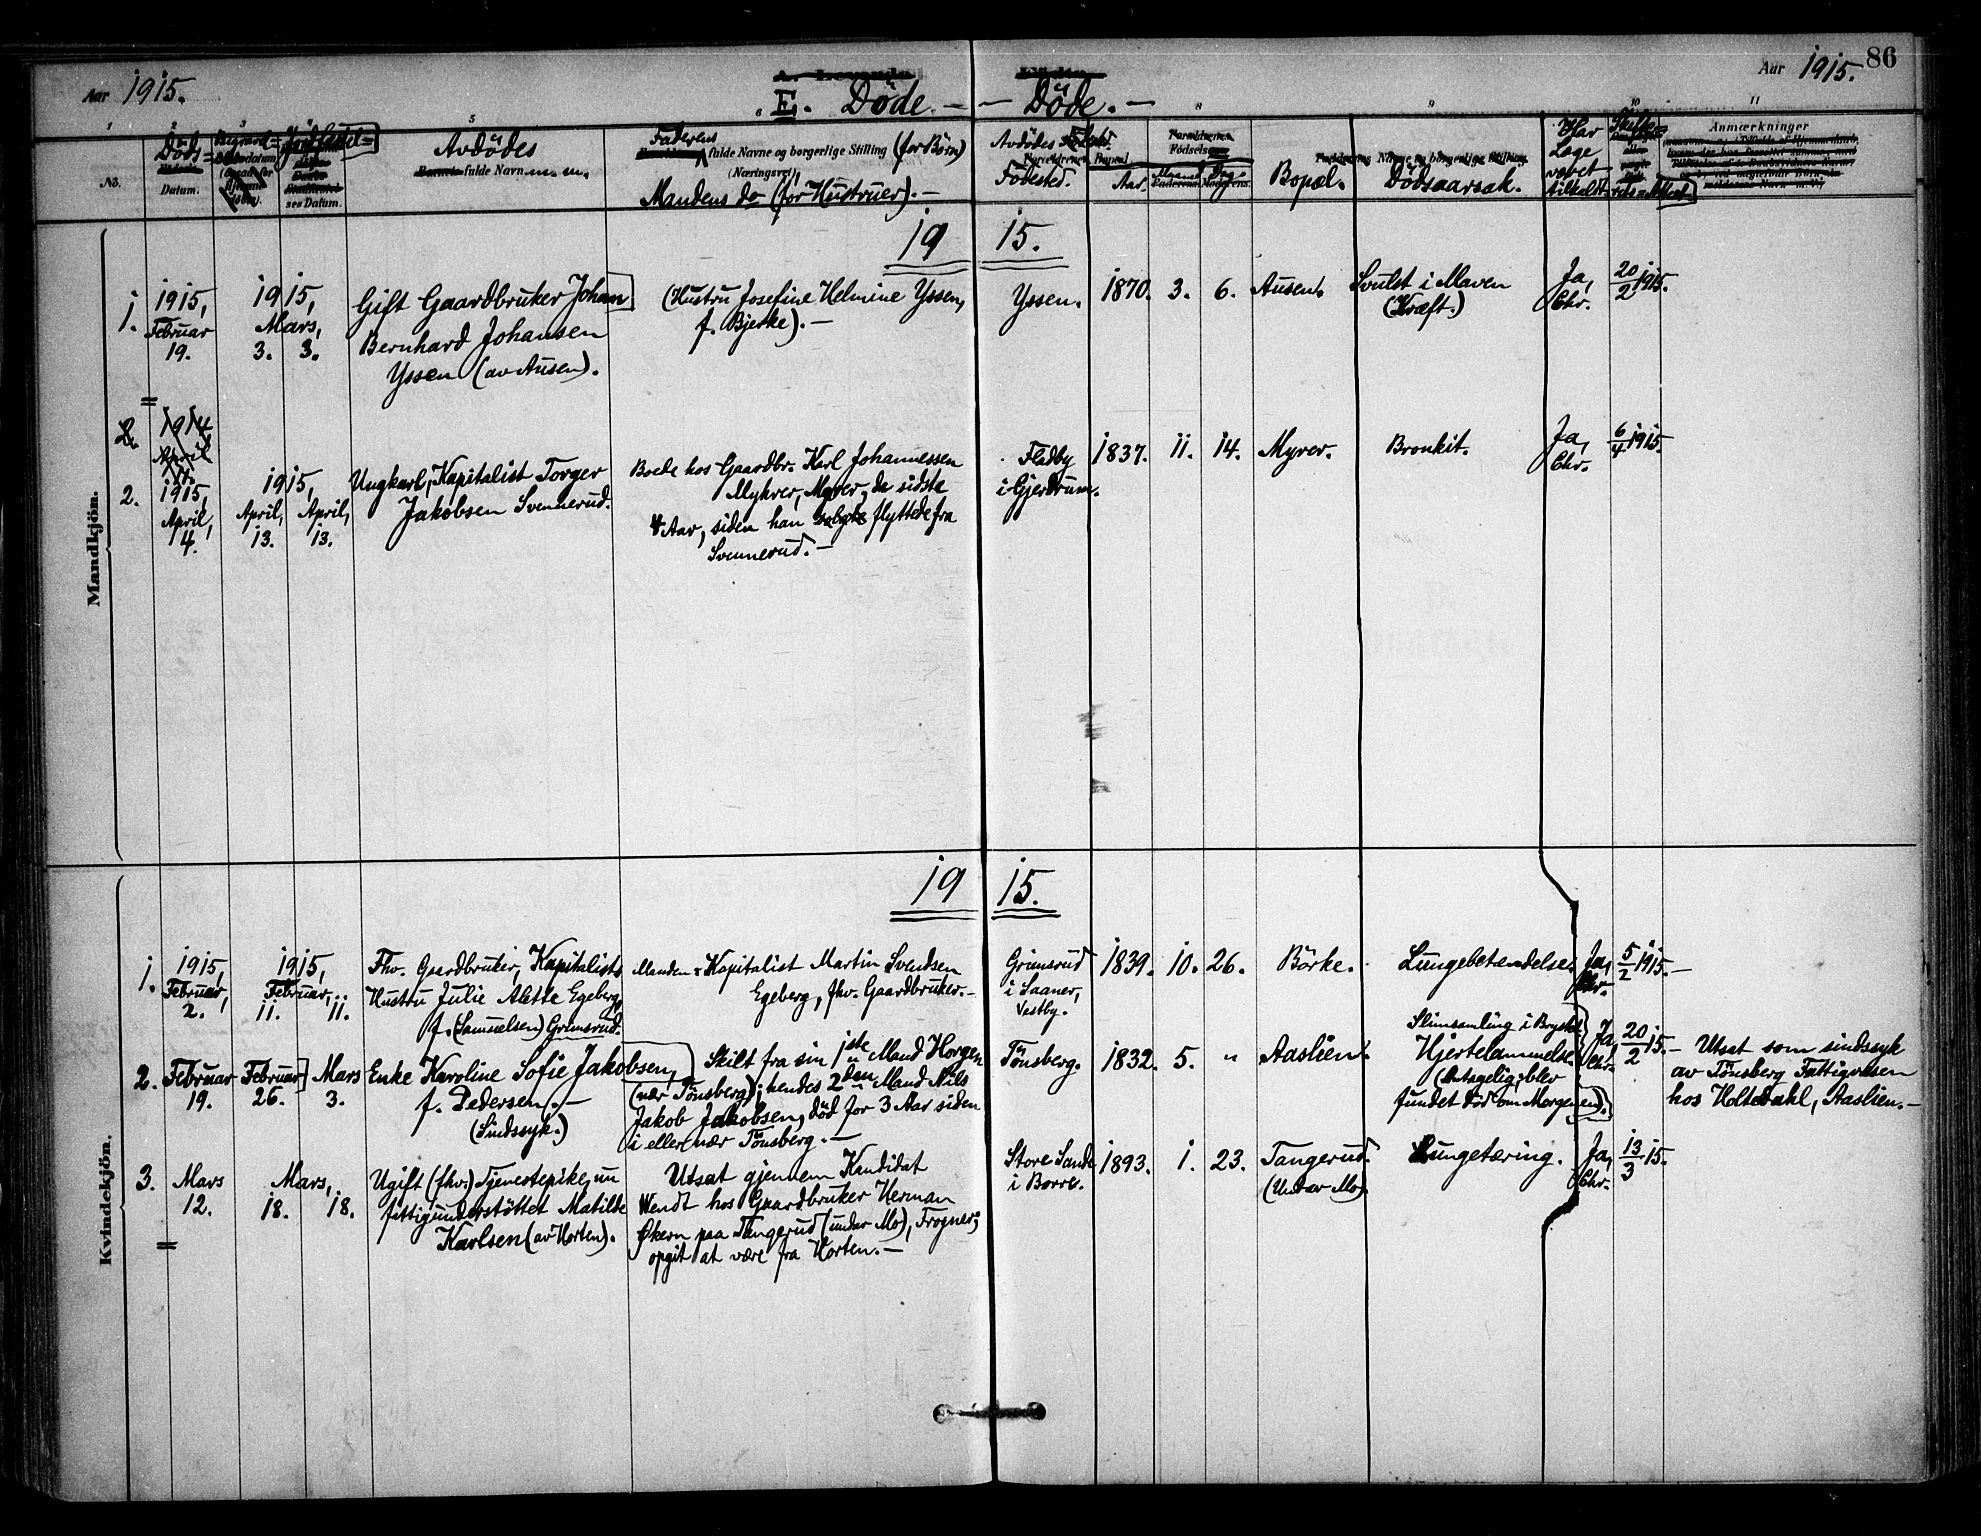 Aar 1915.
E. Döde. — — Döde. —
Aar 1915. 86
1 2 3 5 6 8 9 10 11
No.
Döds=
Datum.
Begravel=
Jordfæstel=
ses Datum.
Avdödes
Barnets fulde Navn m. m.
Faderens fulde Navne og borgerlige Stilling (for Børn)
(Næringsvei)
Mandens do (for Hustruer). —
Avdödes
Födested.
Forældrenes
Fødselsaar
Aar.
Maaned
Dag.
Bopæl.
Forældrenes Navne og borgerlige Stilling.
Dödsaarsak.
Har
Læge
været
tilkaldt
Skifte=
Anmærkninger
Mandkjön.
19 15.
1.
1915,
Februar
19.
1915,
Mars,
3. 3.
Gift Gaardbruker Johan
Bernhard Johansen
Yssen (av Ausen).
(Hustru Josefine Helmine Yssen,
f. Bjerke). —
Yssen.
1870. 3. 6.
Ausen.
Svulst i Maven
(Kræft.)
Ja,
Chr.
20/2 1915.
2.
1914
April
2.
1915,
April,
4.
1915,
April, April,
13. 13.
Ungkarl, Kapitalist Torger
Jakobsen Svennerud.
Boede hos Gaardbr. Karl Johannessen
Myhrer, Myrer, de sidste
4 Aar, siden han solgte flyttede fra
Svennerud. —
Fladby
i Gjerdrum.
1837. 11. 14.
Myrer.
Bronkit.
Ja,
Chr.
6/4 1915.
Kvindekjön.
19 15.
1.
1915,
Februar,
2.
1915,
Februar,
11. 11.
Fhv. Gaardbruker, Kapitalists
Hustru Julie Alette Egeberg,
f. (Samuelsen) Grimsrud.
Manden: Kapitalist Martin Svendsen
Egeberg, fhv. Gaardbruker. —
Grimsrud
i Saaner,
Vestby.
1839. 10. 26.
Börke.
Lungebetændelse.
Ja,
Chr.
5/2 1915. —
2.
Februar
19.
Februar
26.
Mars
3.
Enke Karoline Sofie Jakobsen,
f. Pedersen. —
(Sindssyk.)
Skilt fra sin 1ste Mand Horgen
(nær Tönsberg); hendes 2den Mand Nils
Jakob Jakobsen, död for 3 Aar siden
i eller nær Tönsberg. —
Tönsberg.
1832. 5. "
Aaslien.
Slimsamling i Brystet
Hjertelammelse.
(Antagelig; blev
fundet död om Morgenen).
Ja,
Chr.
20/2 15. —
Utsat som sindssyk
av Tönsberg Fattigvæsen
hos Holtedahl, Aaslien. —
3.
Mars
12.
Mars,
18. 18.
Ugift (fhv.) Tjenestepike, nu
fattigunderstöttet Matilde
Karlsen (av Horten).
Utsat gjennem Kandidat
Wendt hos Gaardbruker Herman
Økern paa Tangerud (under Mo), Frogner;
opgit at være fra Horten. —
Store Sande
i Borre.
1893. 1. 23.
Tangerud.
(Under Mo).
Lungetæring.
Ja,
Chr.
13/3 15.